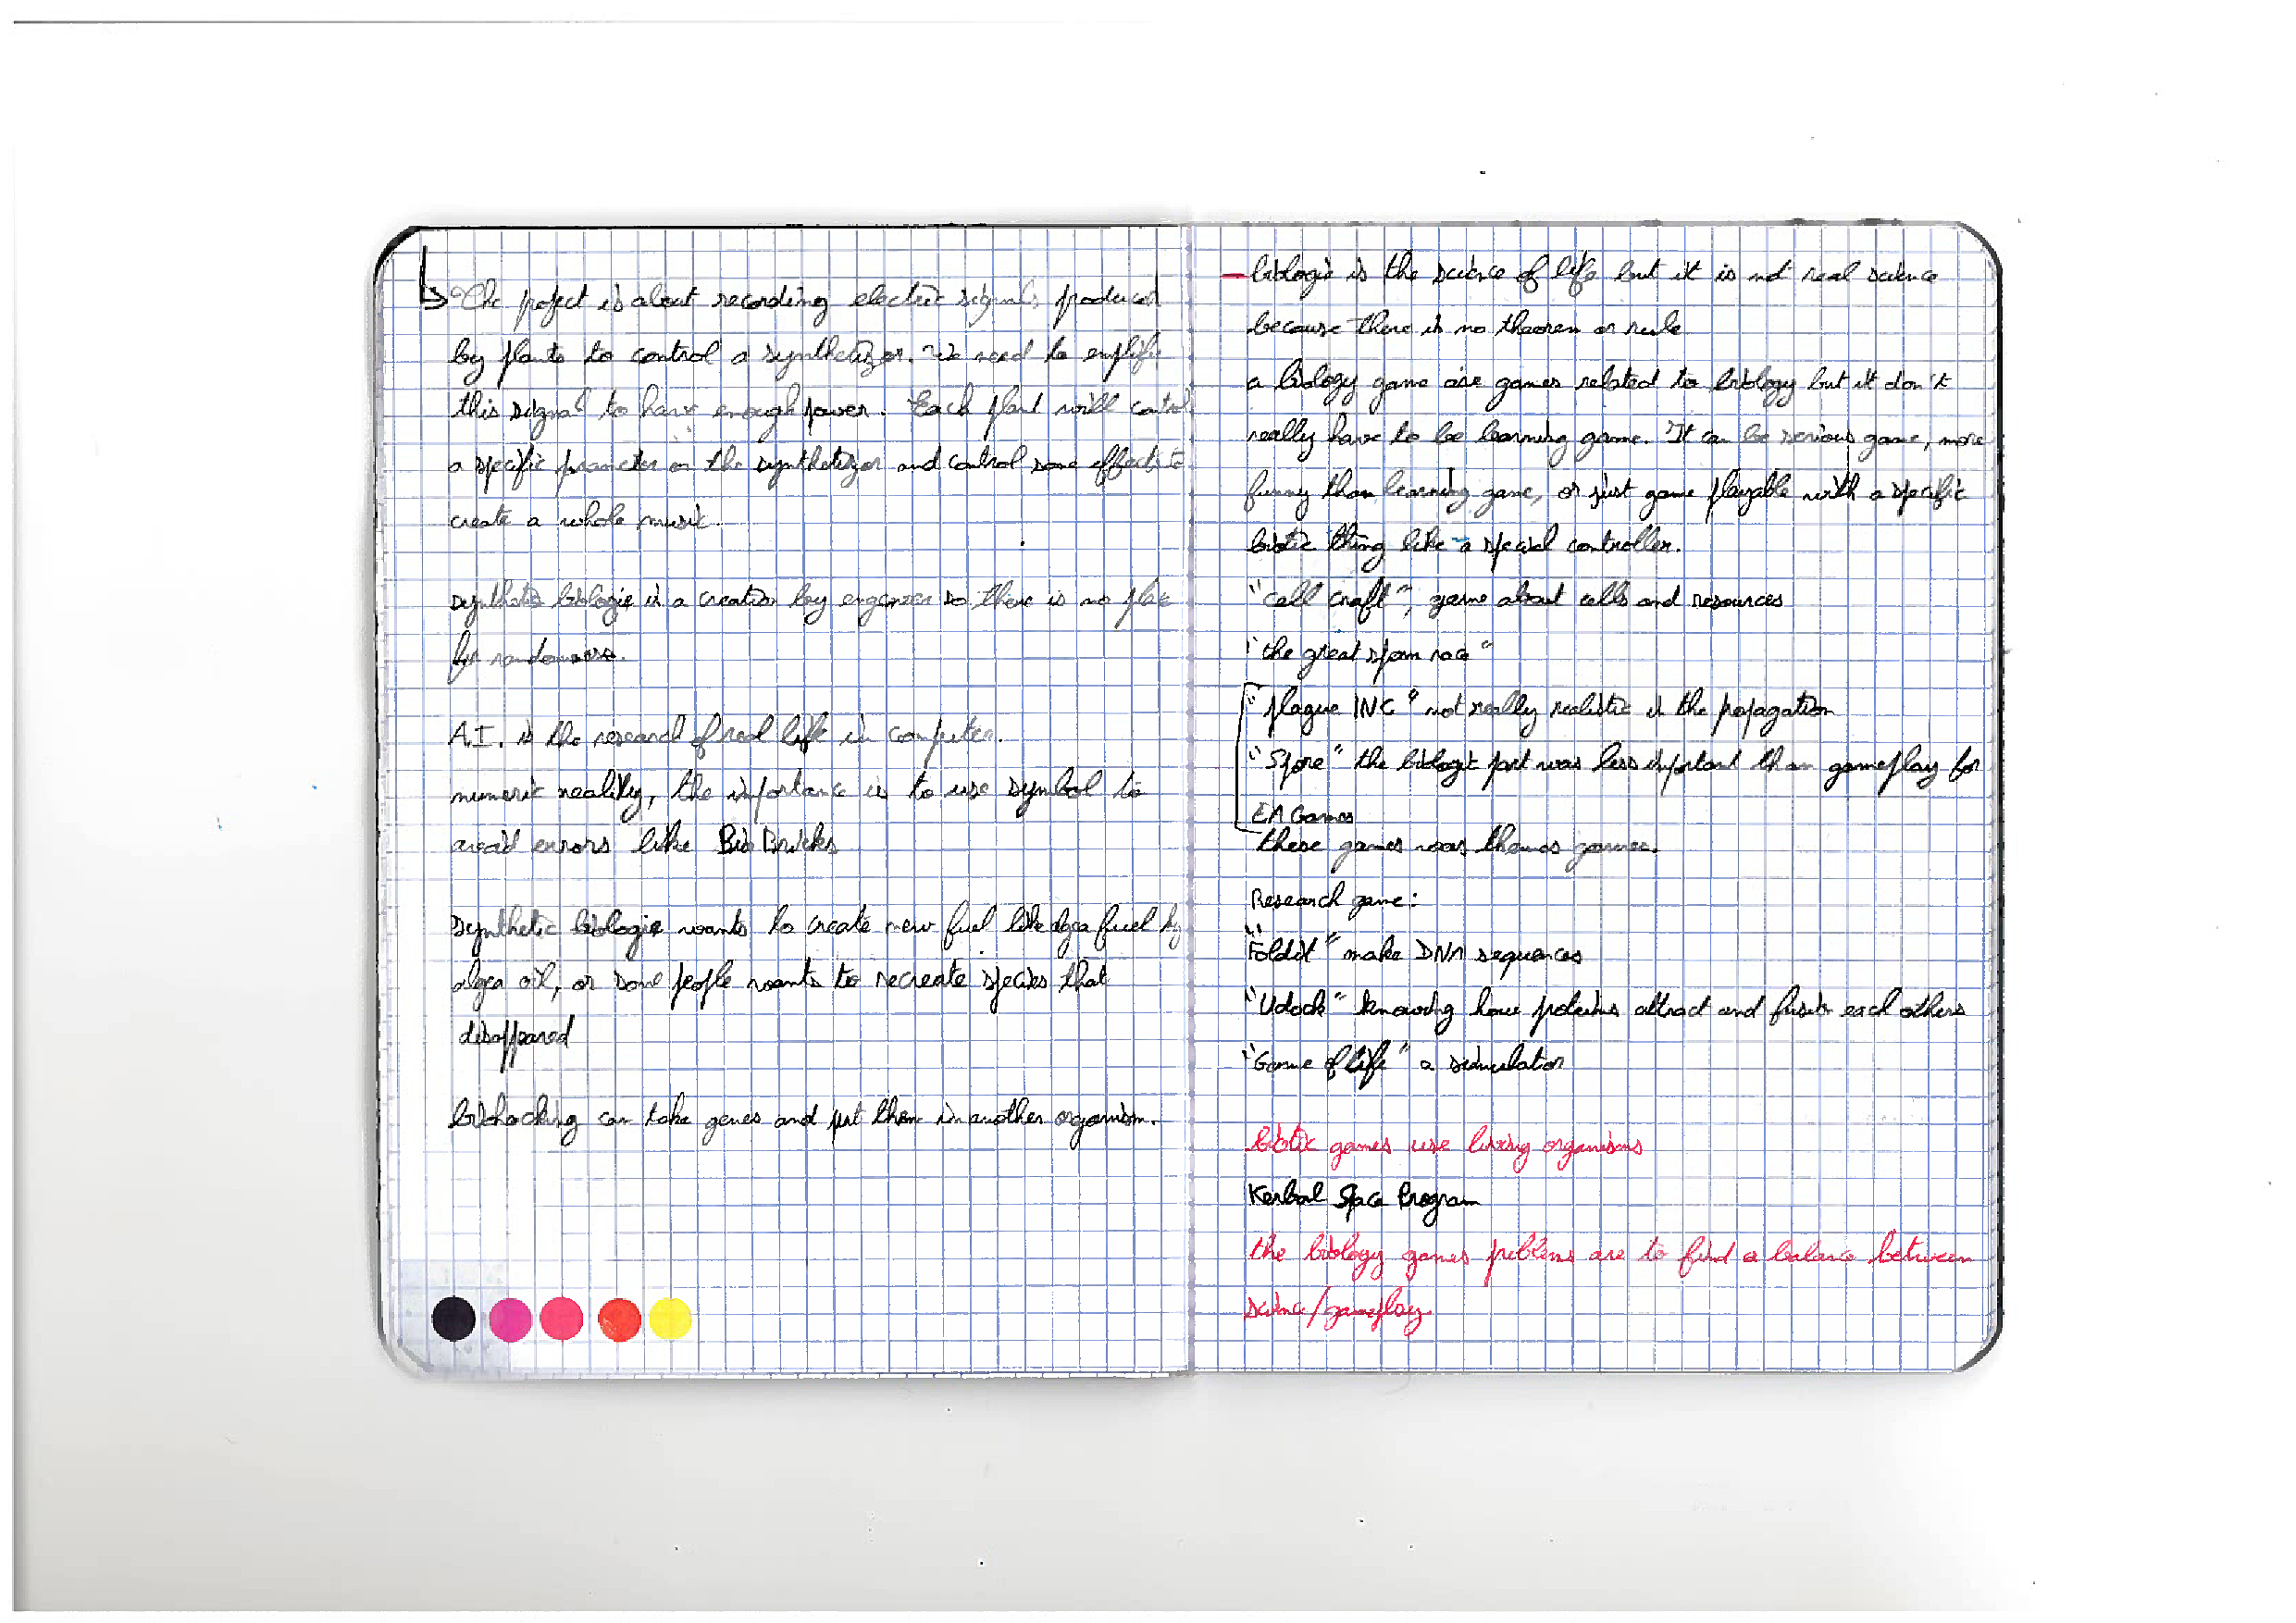 The project is about recording electric signals produced
by plants to control a synthetizer. We need to emplify
this signal to have enough power. Each plant will control
a specific prameter on the synthetizer and control some effects to
create a whole music.
synthetic biologie is a creation by engeneer so there is no place
for randomness.
A.I. is the research of real life in computer.
numeric reality, the importance is to use symbol to
avoid errors like Bio Bricks
synthetic biologie wants to create new fuel like algea fuel by
algea oil, or some people wants to recreate species that
disappeared
biohacking can take genes and put them in another organism.
– biologie is the science of life but it is not real science
because there is no theorem or rule
a biology game are games related to biology but it don't
really have to be learning game. It can be serious game, more
funny than learning game, or just game playable with a specific
biotic thing like a special controller.
"cell craft", game about cells and resources
"the great sperm race"
"plague INC" not really realistic in the propagation
"Spore" the biologic part was less important than gameplay for
EA Games
these games was themes games.
Research game:
"Foldit" make DNA sequences
"Udock" knowing how proteins attract and fusion each others
"Game of life" a simulation
biotic games use living organisms
Kerbal Space Program
the biology games problems are to find a balance between
science/gameplay.